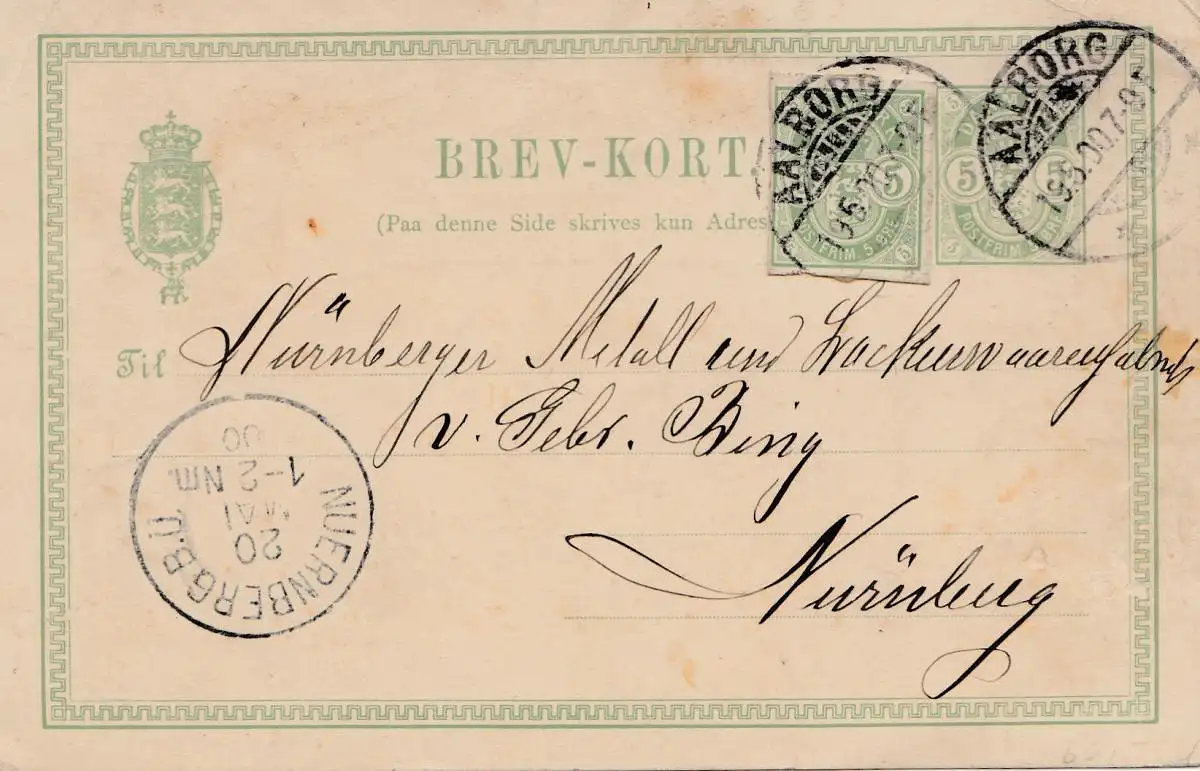 BREV-KORT
(Paa denne Side skrives kun Adres
AALBORG
5
POSTFRIM. 5 ØRE
5
AALBORG
19.5.00.7-8
DA
5
5
POSTFRIM
Til Nürnberger Metall und Lackierwaarenfabrik
v. Gebr. Bing
Nürnberg
NUERNBERG
20
MAI
1-2 Nm.
00